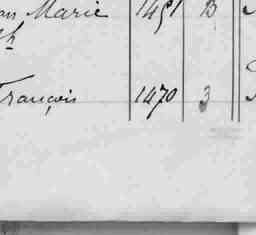 Marie 1451 B
François 1470 3